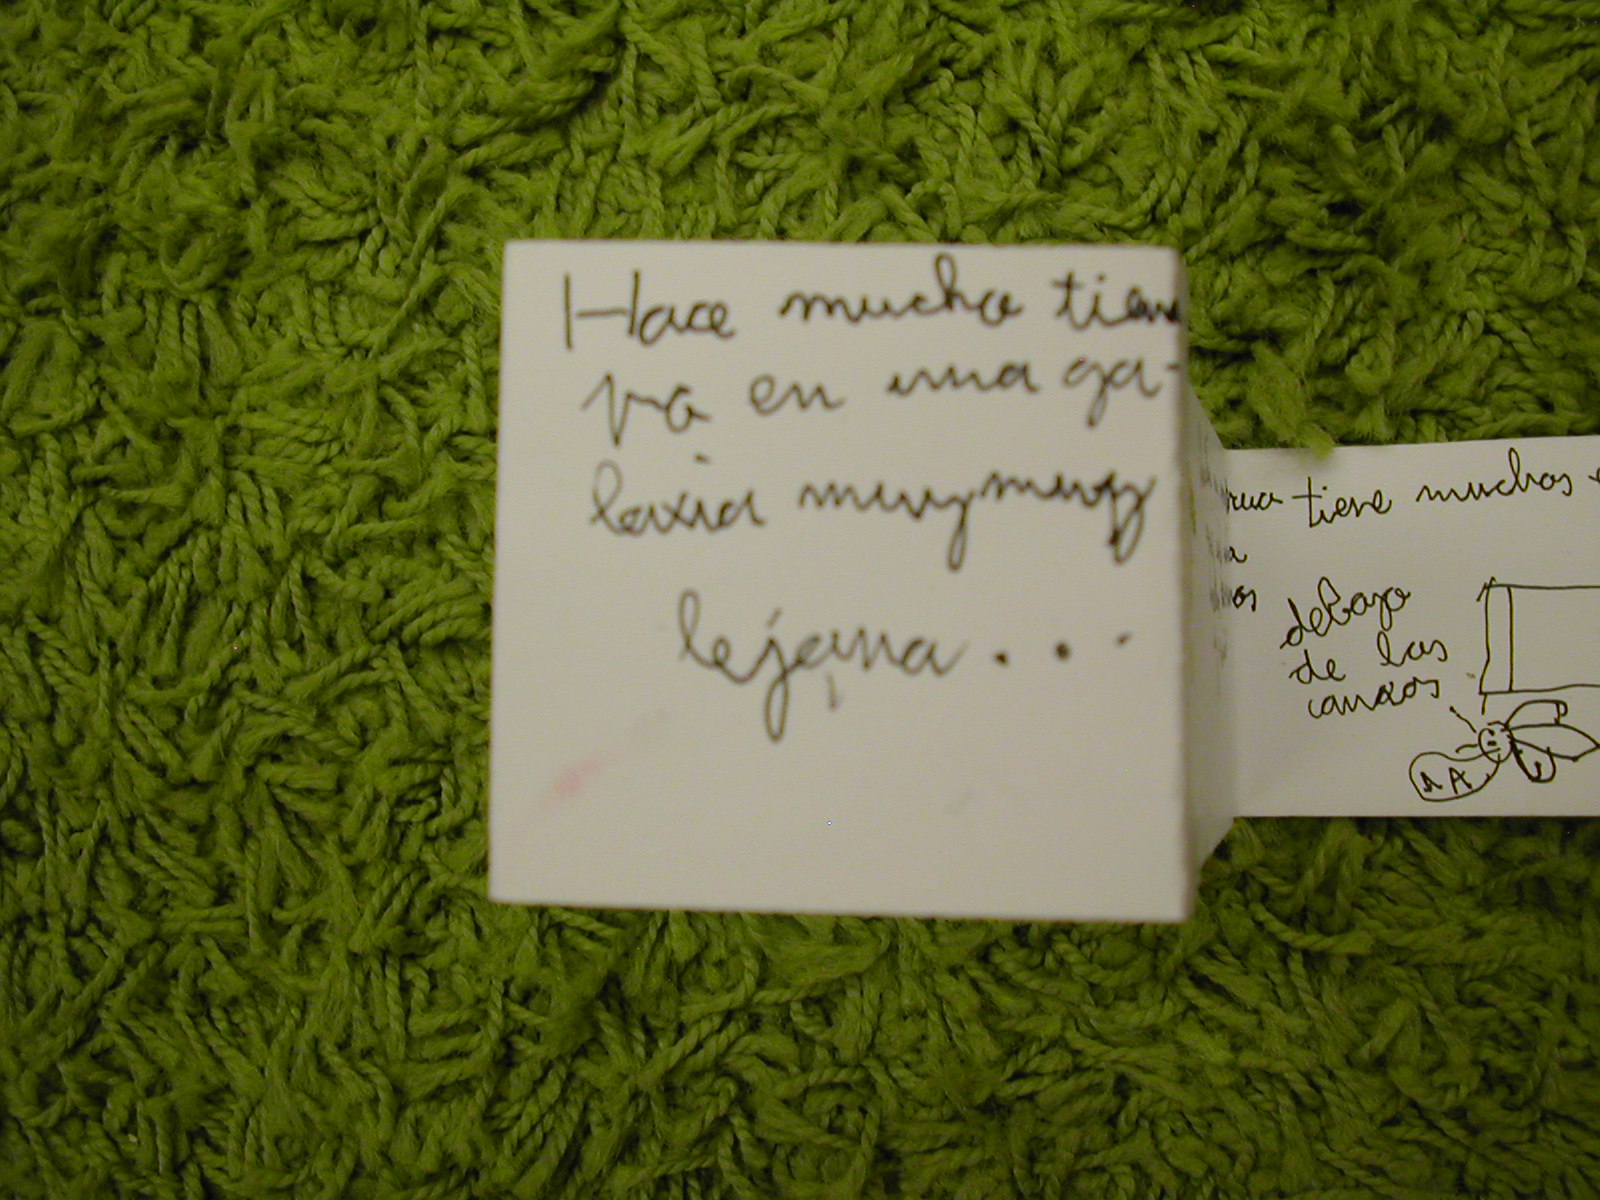 Hace mucho tiem
po en una ga-
laxia muy muy
lejana...
tiene muchos
debajo
de las
AA